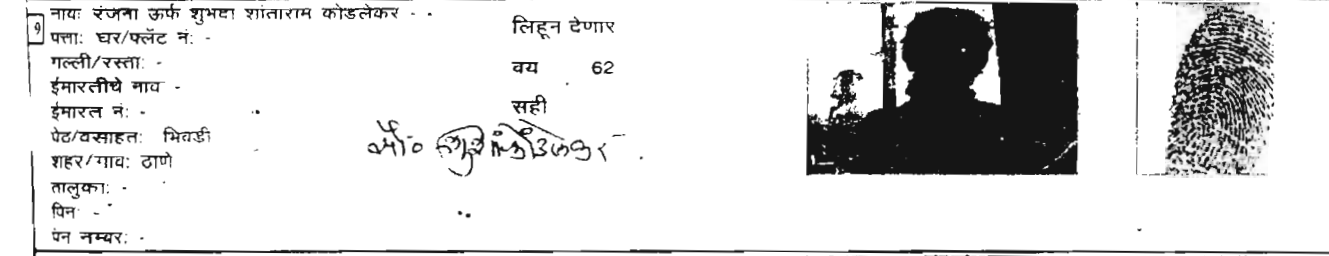 ९
नावः रंजना ऊर्फ शुभदा शांताराम कोंडलेकर - -
पत्ताः घर/फ्लॅट नं: -
गल्ली/रस्ताः -
ईमारतीचे नाव -
ईमारत नं: -
पेठ/वसाहतः भिवंडी
शहर/गावः ठाणे
तालुकाः -
पिन -
पॅन नम्बरः -
लिहून देणार
वय 62
सही
सौ०